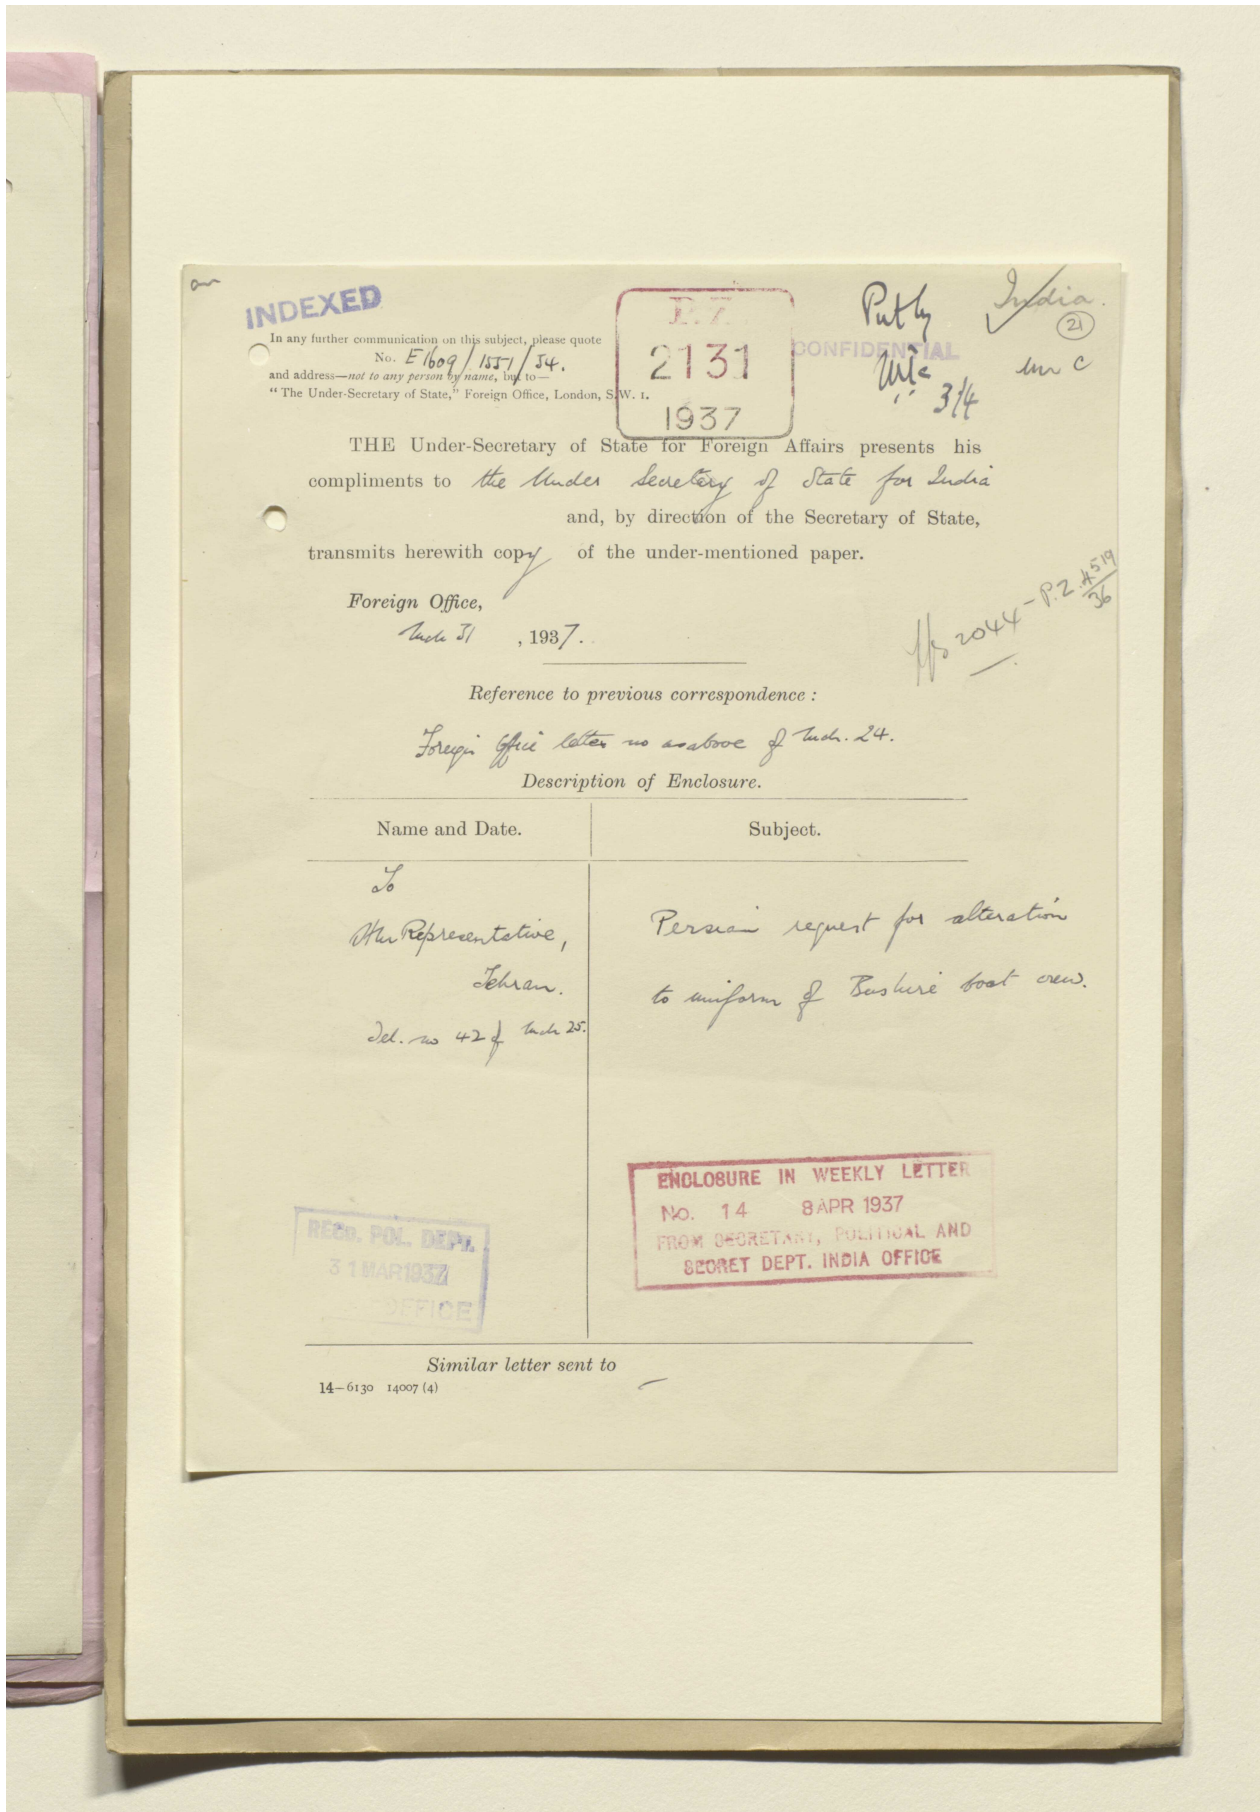 INDEXED
P.Z.
2131
1937
India.
21
CONFIDENTIAL
3/4
In any further communication on this subject, please quote
No. E1609/1551/34.
and address—not to any person by name, but to—
"The Under-Secretary of State," Foreign Office, London, S.W. 1.
THE Under-Secretary of State for Foreign Affairs presents his
compliments to the Under Secretary of State for India
and, by direction of the Secretary of State,
transmits herewith copy of the under-mentioned paper.
2044 - P.Z. 4519/36
Foreign Office,
Mch 31, 1937.
Reference to previous correspondence:
Foreign Office letter no as above of Mch. 24.
Description of Enclosure.
Name and Date.
Subject.
To
Representative,
Tehran.
Tel. no 42 of Mch 25.
Persian request for alteration
to uniform of Bushire boat crew.
ENCLOSURE IN WEEKLY LETTER
No. 14 8 APR 1937
FROM SECRETARY, POLITICAL AND
SECRET DEPT. INDIA OFFICE
RECD. POL. DEPT.
31 MAR 1937
OFFICE
Similar letter sent to
14—6130 14007 (4)